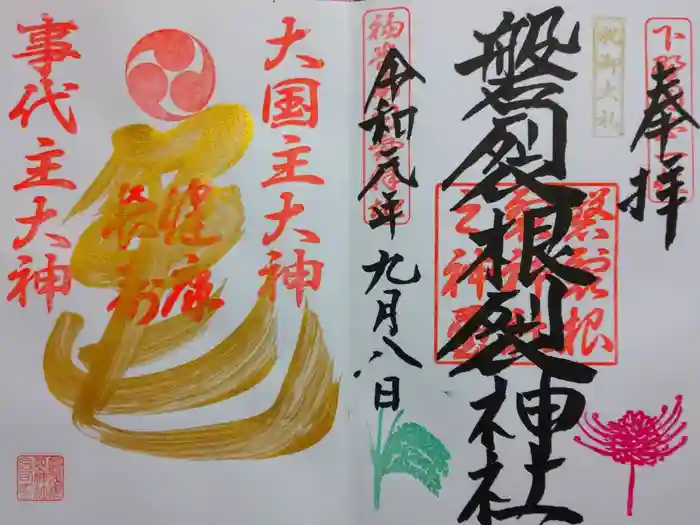 奉拝
祝御大礼
磐裂根裂神社
令和元年九月八日
大国主大神
亀
健康
長寿
事代主大神